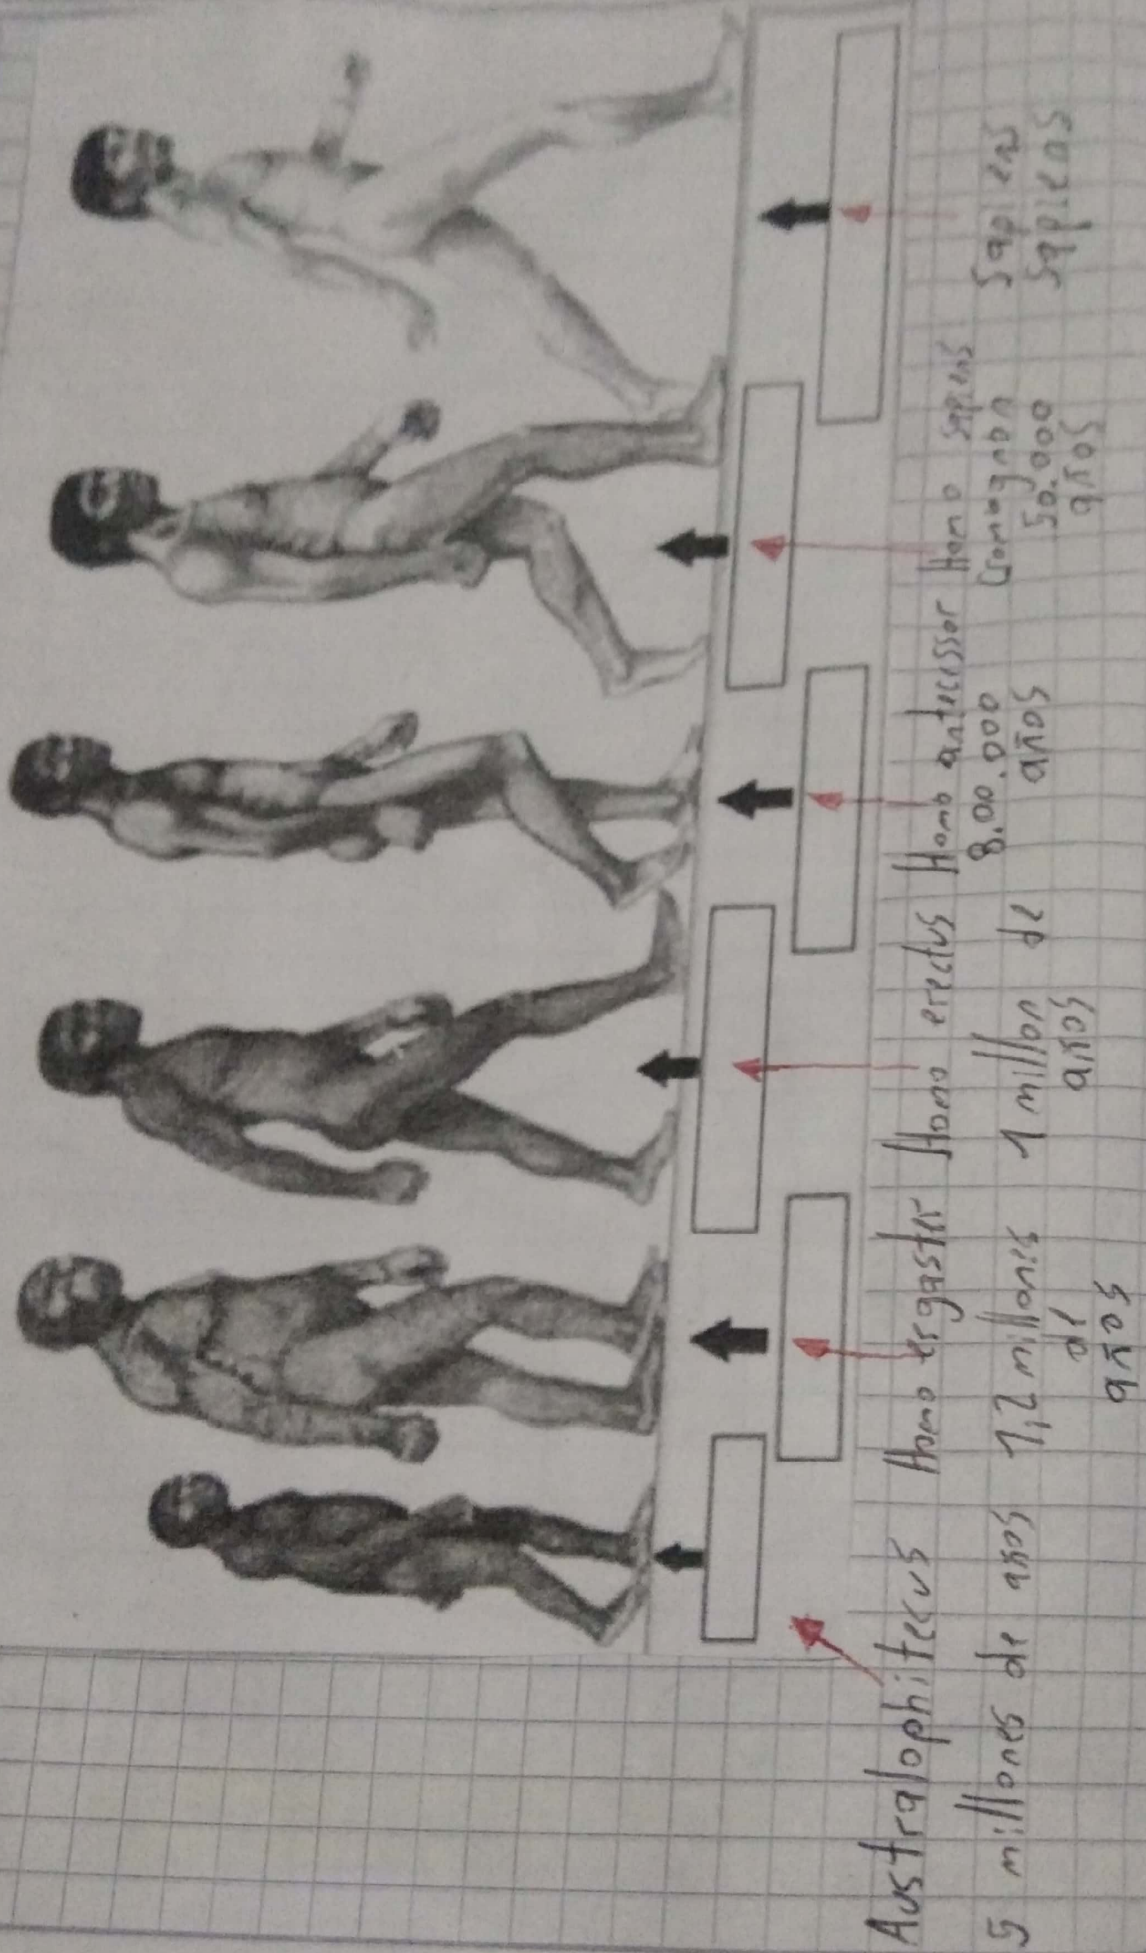 Australophitecus
5 millones de años
Homo ergaster
1,2 millones
de
años
Homo erectus
1 millon de
años
Homo antecessor
8.00.000
años
Homo sapiens
Cromagnon
50.000
años
Sapiens
Sapiens